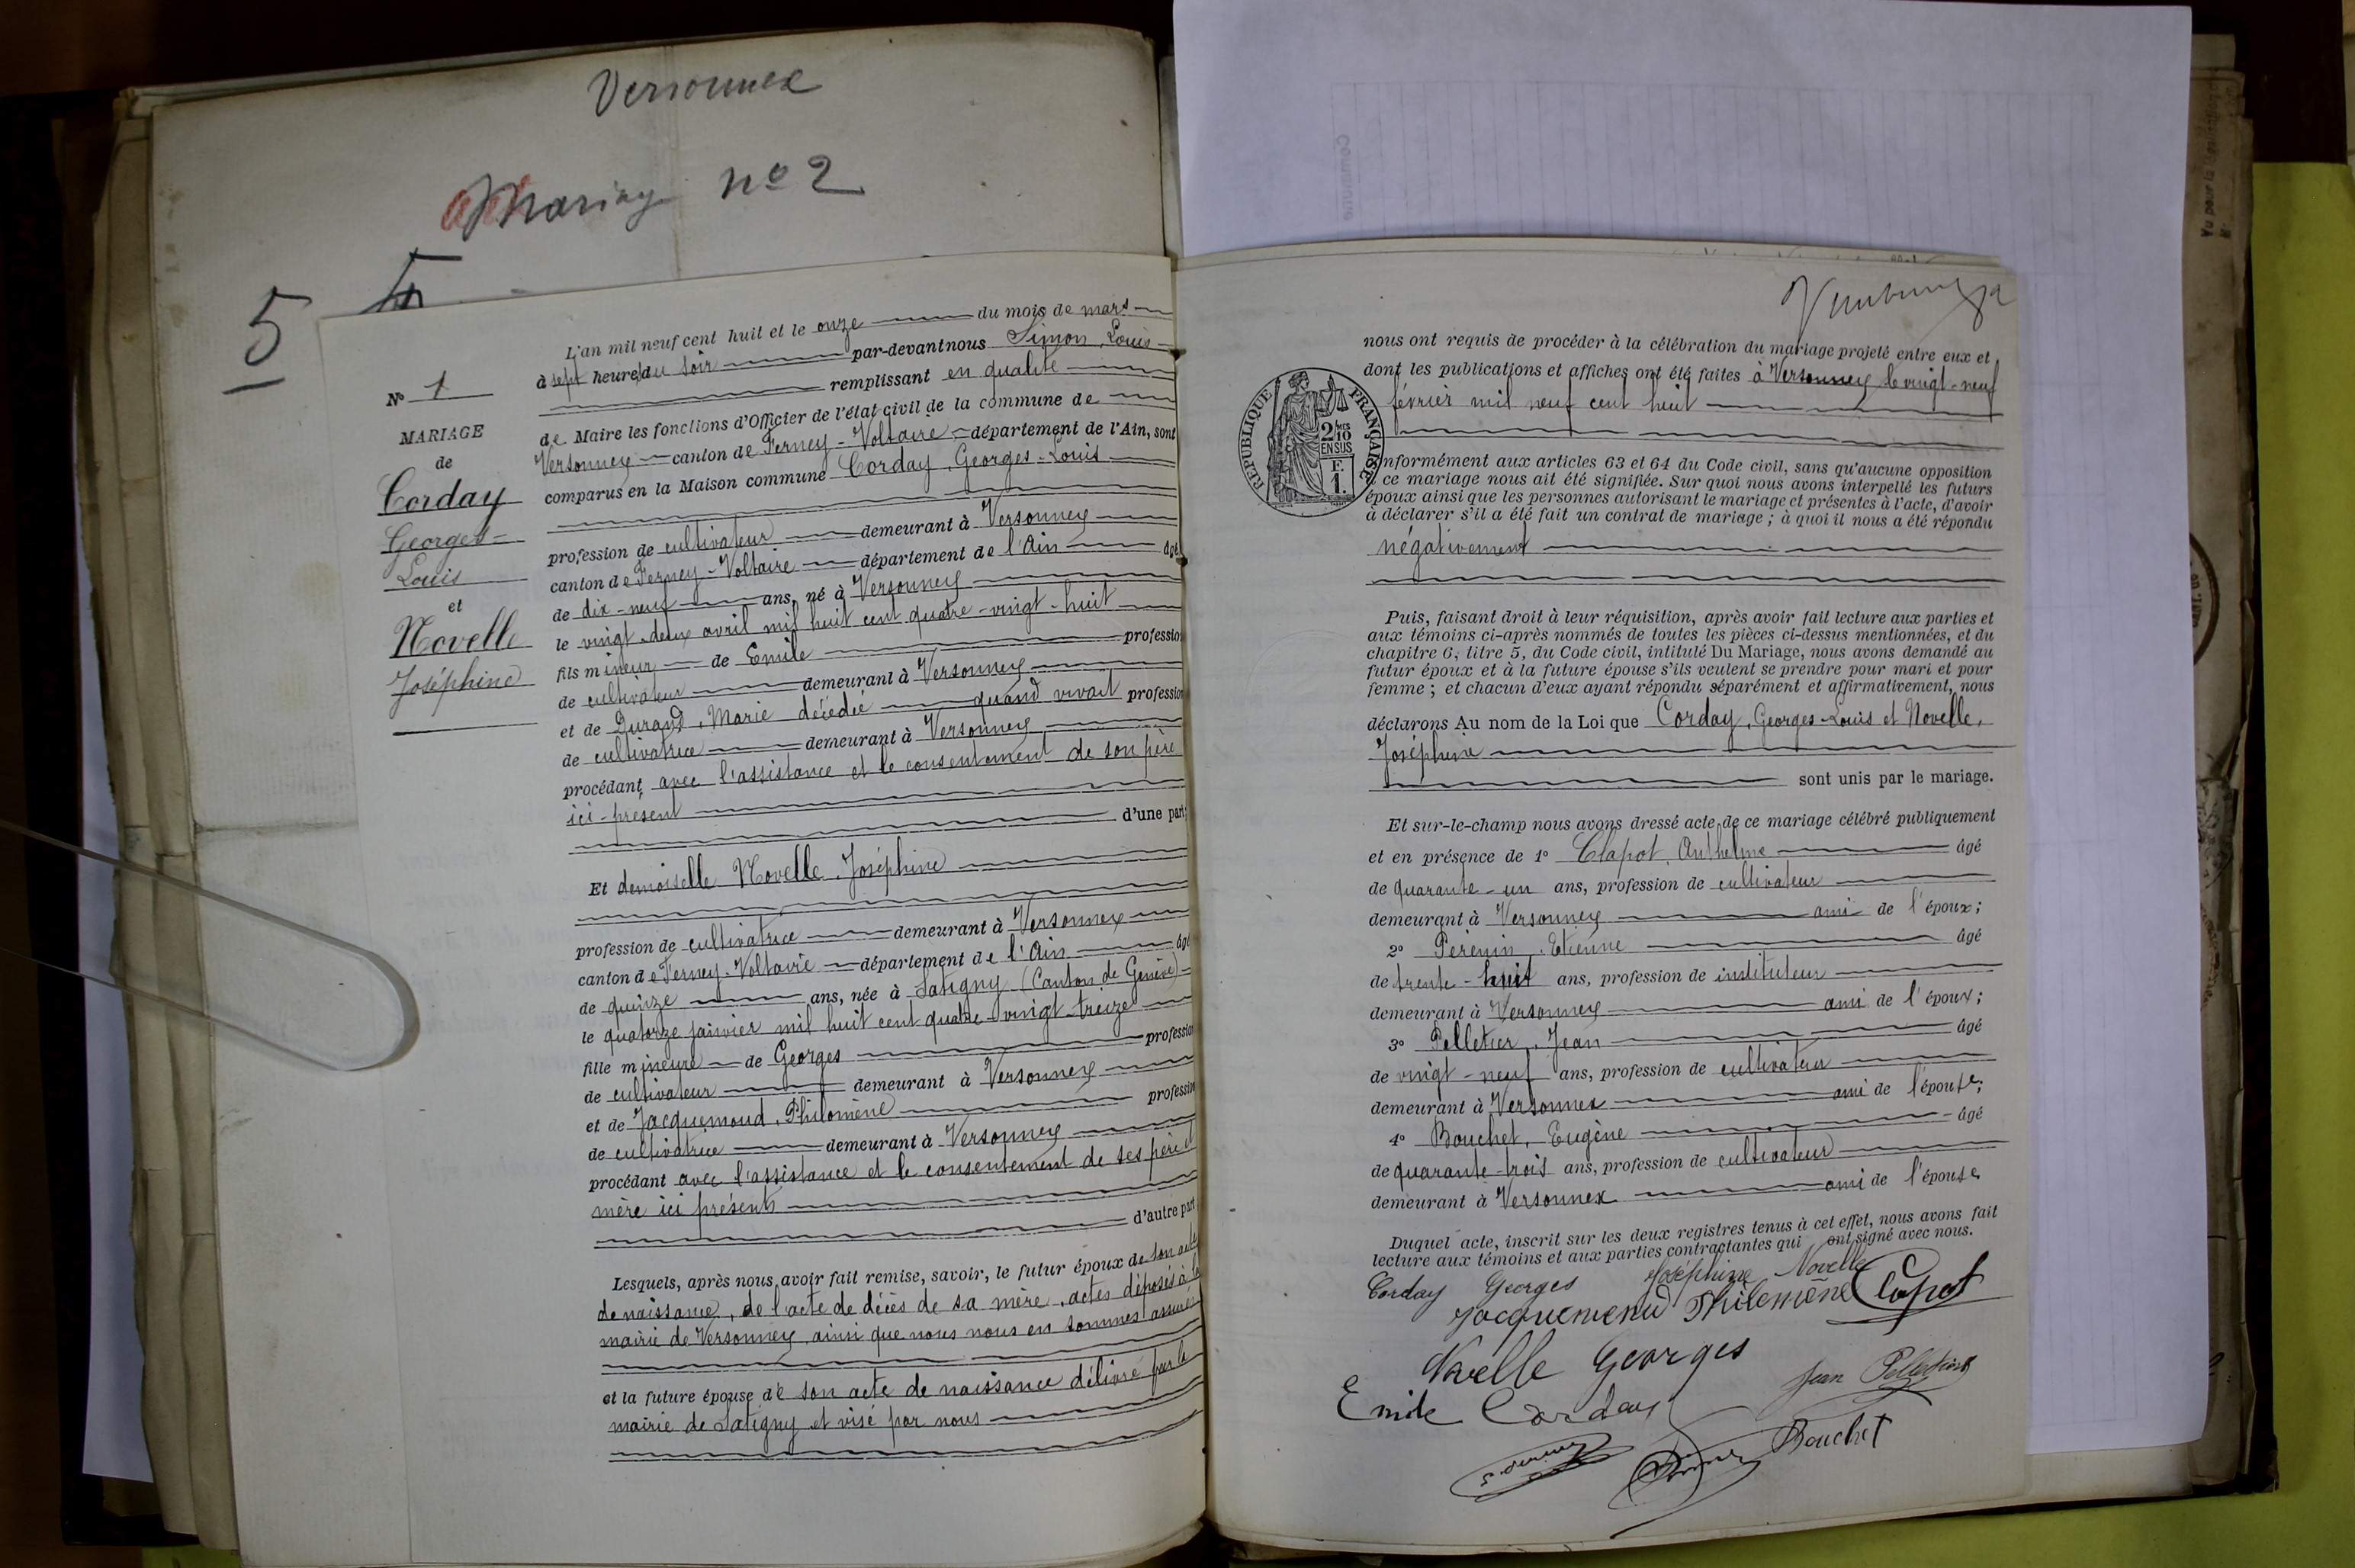 Versonnex
Mariage nº 2
5
Nº 1
MARIAGE
de
Corday
Georges-
Louis
et
Novelle
Joséphine
L'an mil neuf cent huit et le onze du mois de mars
à sept heures du soir par-devant nous Simon, Louis
remplissant en qualité
de Maire les fonctions d'Officier de l'état civil de la commune de
Versonnex canton de Ferney-Voltaire département de l'Ain, sont
comparus en la Maison commune Corday, Georges-Louis
profession de cultivateur demeurant à Versonnex
canton de Ferney-Voltaire département de l'Ain âgé
de dix-neuf ans, né à Versonnex
le vingt-deux avril mil huit cent quatre-vingt-huit
fils mineur de Emile profession
de cultivateur demeurant à Versonnex
et de Durand, Marie décédée quand vivait profession
de cultivatrice demeurant à Versonnex
procédant avec l'assistance et le consentement de son père
ici-présent
d'une part;
Et demoiselle Novelle, Joséphine
profession de cultivatrice demeurant à Versonnex
canton de Ferney-Voltaire département de l'Ain âgé
de quinze ans, née à Satigny (Canton de Genève)
le quatorze janvier mil huit cent quatre-vingt-treize
fille mineure de Georges profession
de cultivateur demeurant à Versonnex
et de Jacquemoud, Philomène profession
de cultivatrice demeurant à Versonnex
procédant avec l'assistance et le consentement de ses père et
mère ici présents
d'autre part
Lesquels, après nous avoir fait remise, savoir, le futur époux de son acte
de naissance, de l'acte de décès de sa mère, actes déposés à la
mairie de Versonnex, ainsi que nous nous en sommes assuré
et la future épouse de son acte de naissance délivré par la
mairie de Satigny et visé par nous
RÉPUBLIQUE FRANÇAISE
2/10
EN SUS
F.
1.
nous ont requis de procéder à la célébration du mariage projeté entre eux et
dont les publications et affiches ont été faites à Versonnex le vingt-neuf
février mil neuf cent huit
nformément aux articles 63 et 64 du Code civil, sans qu'aucune opposition
ce mariage nous ait été signifiée. Sur quoi nous avons interpellé les futurs
époux ainsi que les personnes autorisant le mariage et présentes à l'acte, d'avoir
à déclarer s'il a été fait un contrat de mariage; à quoi il nous a été répondu
négativement
Puis, faisant droit à leur réquisition, après avoir fait lecture aux parties et
aux témoins ci-après nommés de toutes les pièces ci-dessus mentionnées, et du
chapitre 6, titre 5, du Code civil, intitulé Du Mariage, nous avons demandé au
futur époux et à la future épouse s'ils veulent se prendre pour mari et pour
femme; et chacun d'eux ayant répondu séparément et affirmativement, nous
déclarons Au nom de la Loi que Corday, Georges-Louis et Novelle,
Joséphine
sont unis par le mariage.
Et sur-le-champ nous avons dressé acte de ce mariage célébré publiquement
et en présence de 1º Clapot, Anthelme âgé
de quarante-un ans, profession de cultivateur
demeurant à Versonnex ami de l'époux;
2º Perenin, Etienne âgé
de trente-huit ans, profession de instituteur
demeurant à Versonnex ami de l'époux;
3º Pelletier, Jean âgé
de vingt-neuf ans, profession de cultivateur
demeurant à Versonnex ami de l'épouse;
4º Bouchet, Eugène âgé
de quarante-trois ans, profession de cultivateur
demeurant à Versonnex ami de l'épouse
Duquel acte, inscrit sur les deux registres tenus à cet effet, nous avons fait
lecture aux témoins et aux parties contractantes qui ont signé avec nous.
Corday Georges Joséphine Novelle
Jacquemoud Philomène Clapot
Novelle Georges
Jean Pelletier
Emile Corday
Bouchet